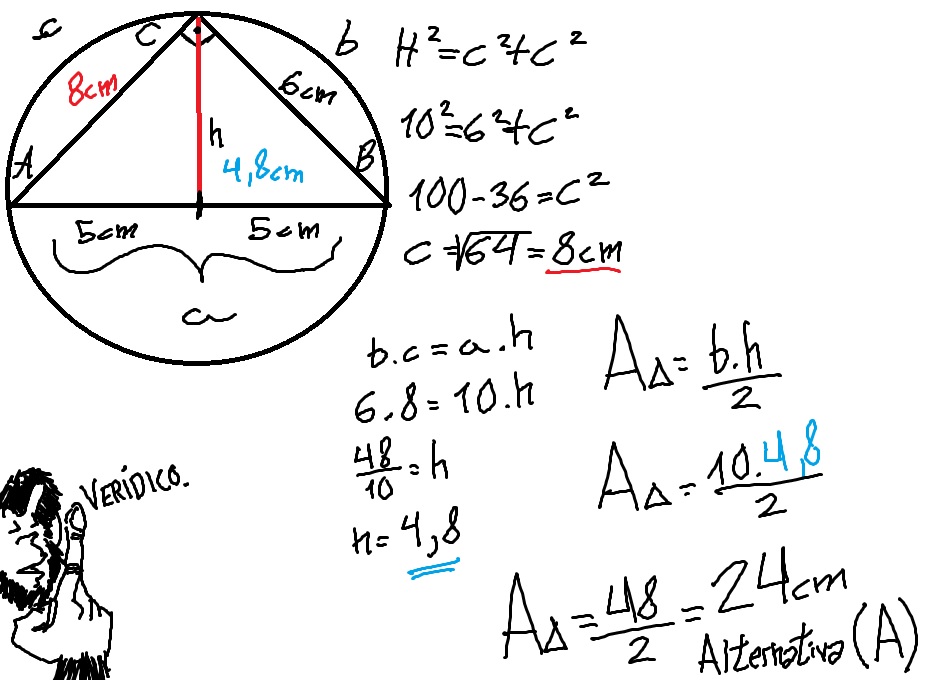 c
C
b
8cm
6cm
A
h
B
4,8cm
5cm
5cm
a
H²=c²+c²
10²=6²+c²
100-36=c²
c=√64=8cm
b.c=a.h
6.8=10.h
48/10=h
h=4,8
A△=b.h/2
A△=10.4,8/2
A△=48/2=24cm
Alternativa (A)
VERÍDICO.